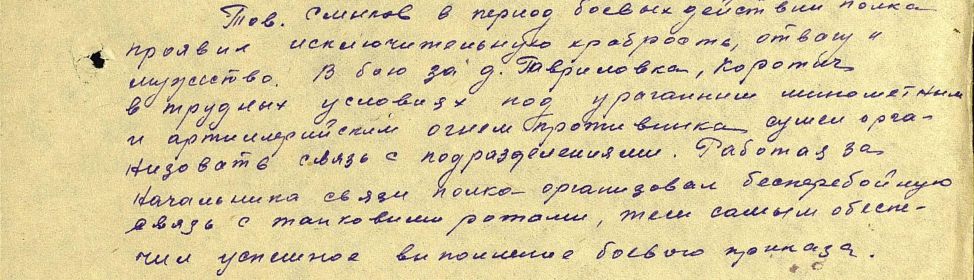 Тов. Смыков в период боевых действий полка
проявил исключительную храбрость, отвагу и
мужество. В бою за д. Гавриловка, Коротич
в трудных условиях под ураганным минометным
и артиллерийским огнем противника сумел орга-
низовать связь с подразделениями. Работая за
начальника связи полка организовал бесперебойную
связь с танковыми ротами, тем самым обеспе-
чил успешное выполнение боевого приказа.